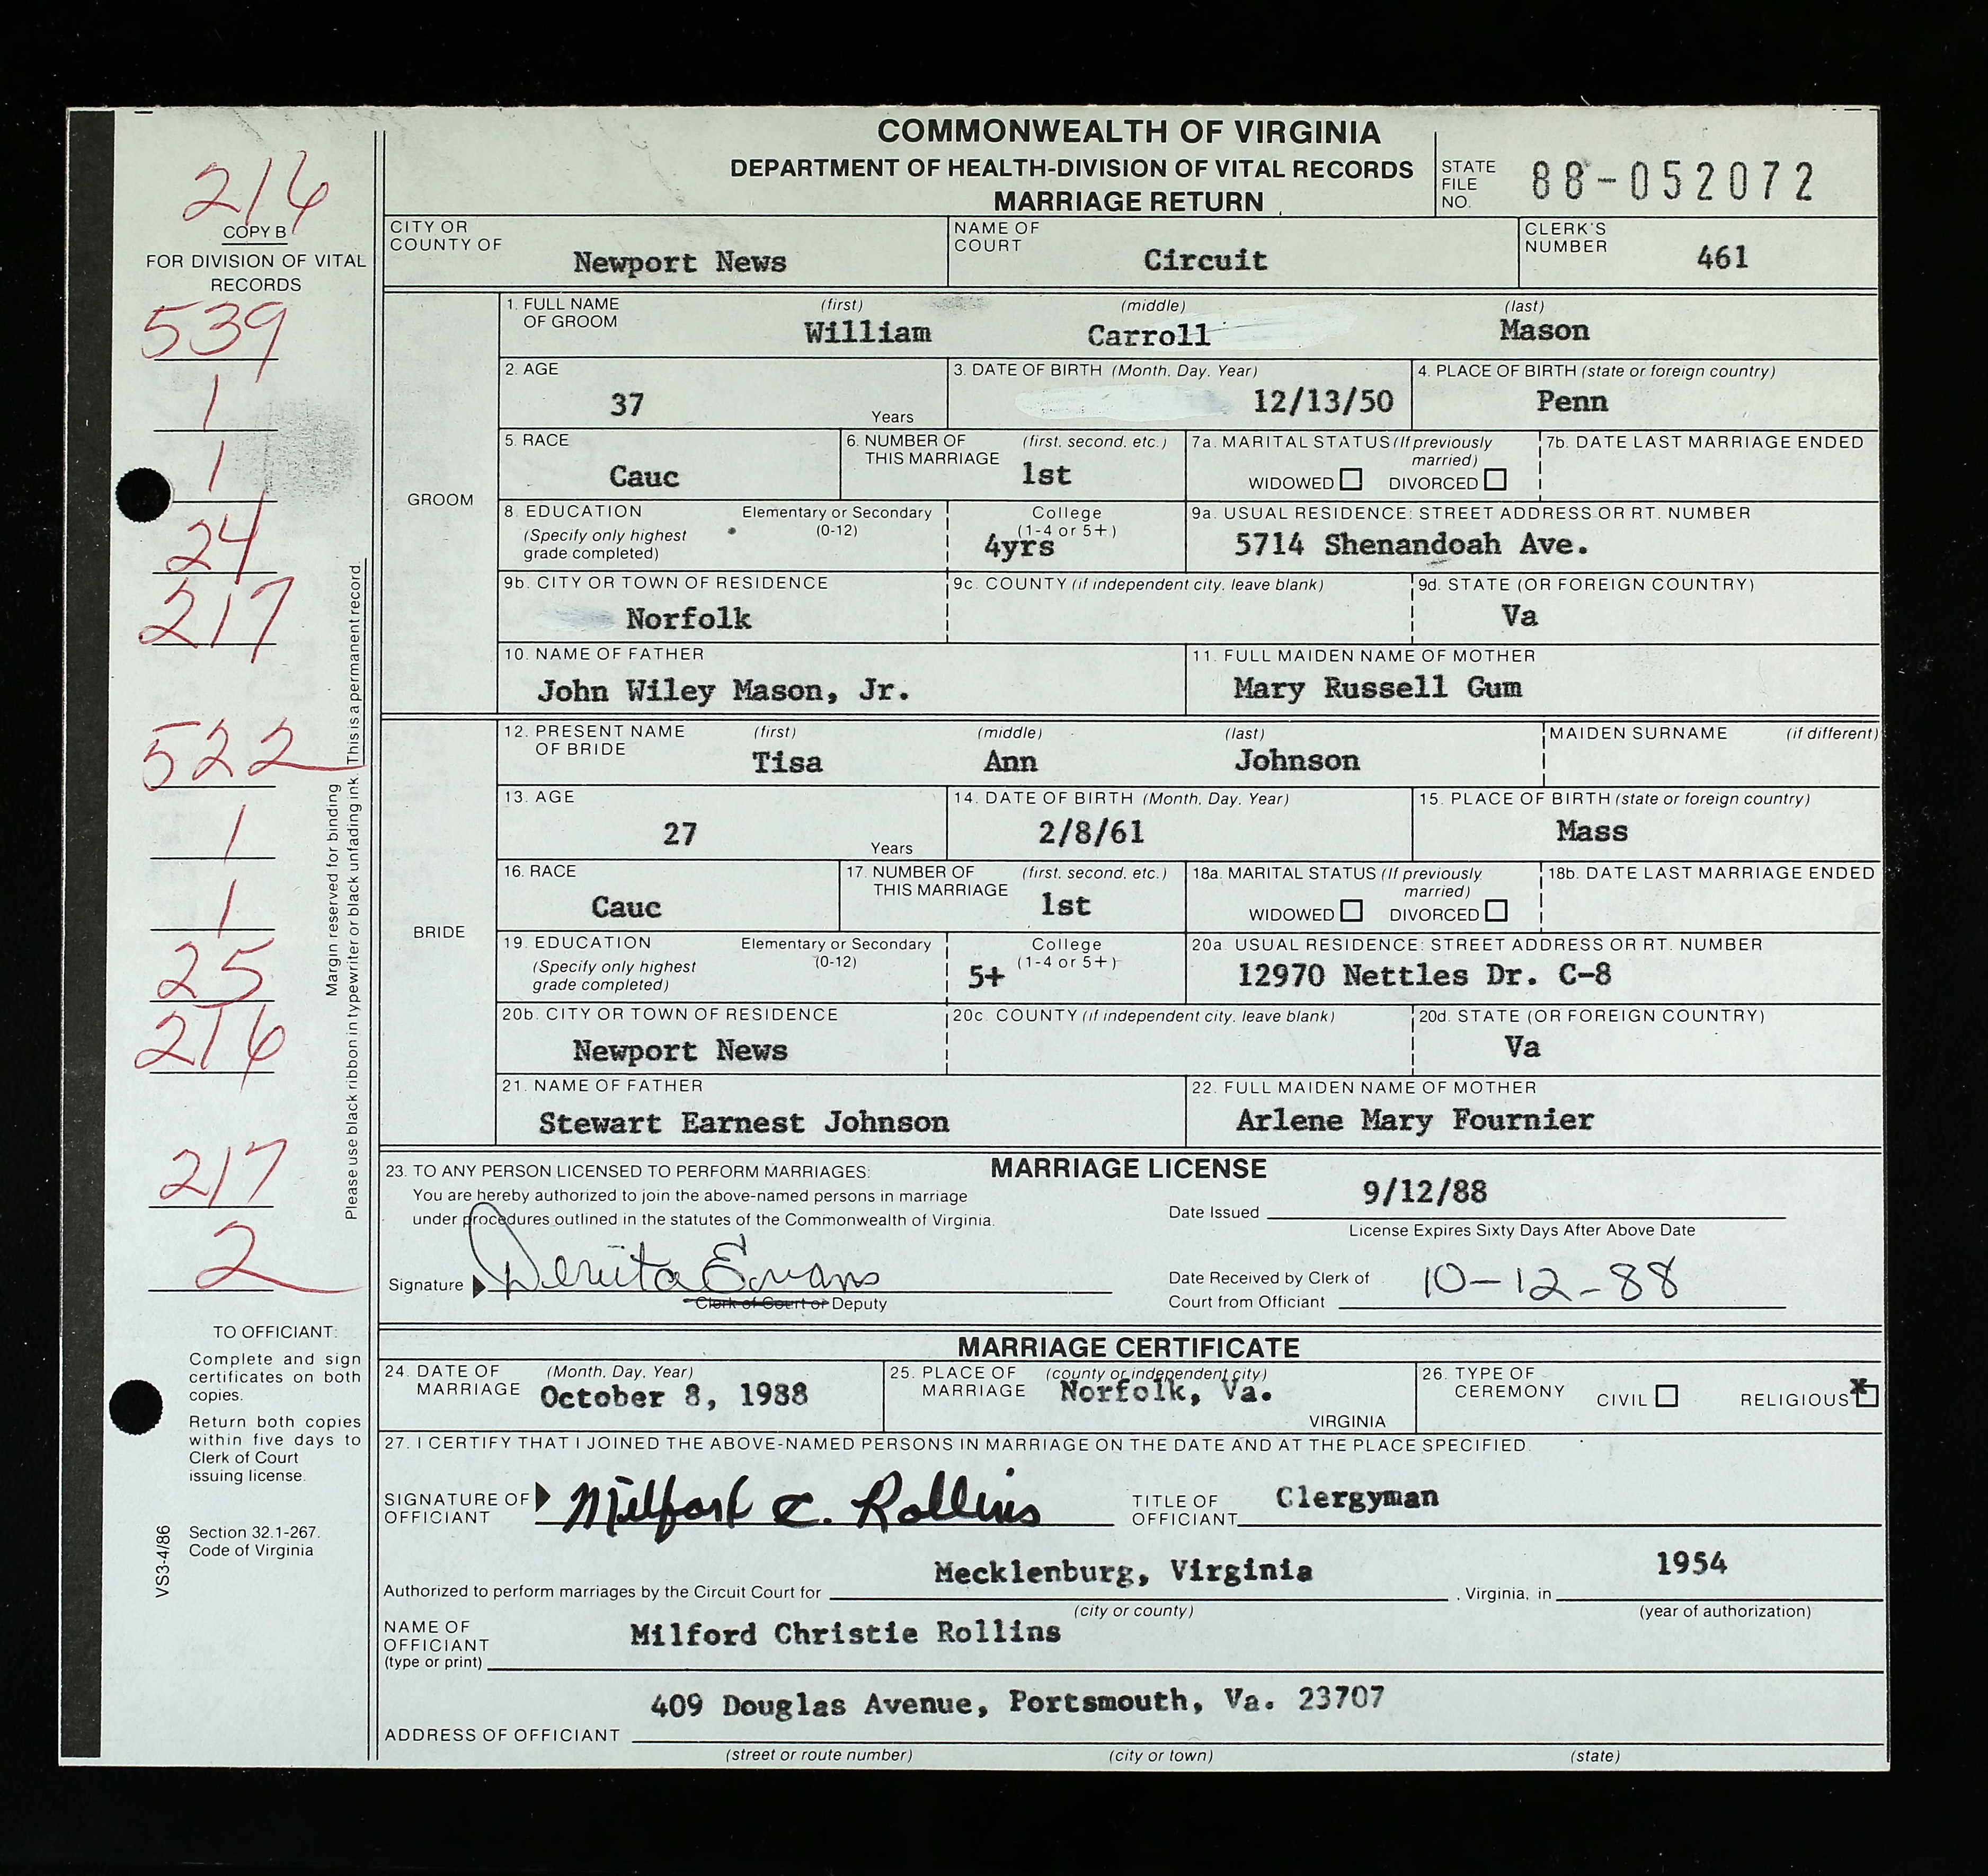 COMMONWEALTH OF VIRGINIA
DEPARTMENT OF HEALTH-DIVISION OF VITAL RECORDS
MARRIAGE RETURN
STATE FILE NO. 88-052072
216
COPY B
FOR DIVISION OF VITAL RECORDS
539
1
1
24
217
522
1
1
25
216
217
2
Margin reserved for binding
Please use black ribbon in typewriter or black unfading ink. This is a permanent record.
TO OFFICIANT:
Complete and sign
certificates on both
copies.
Return both copies
within five days to
Clerk of Court
issuing license.
Section 32.1-267.
Code of Virginia
VS3-4/86
CITY OR COUNTY OF Newport News
NAME OF COURT Circuit
CLERK'S NUMBER 461
GROOM
1. FULL NAME OF GROOM (first) William (middle) Carroll (last) Mason
2. AGE 37 Years
3. DATE OF BIRTH (Month, Day, Year) 12/13/50
4. PLACE OF BIRTH (state or foreign country) Penn
5. RACE Cauc
6. NUMBER OF THIS MARRIAGE (first, second, etc.) 1st
7a. MARITAL STATUS (If previously married) WIDOWED DIVORCED
7b. DATE LAST MARRIAGE ENDED
8. EDUCATION (Specify only highest grade completed) Elementary or Secondary (0-12) College (1-4 or 5+) 4yrs
9a. USUAL RESIDENCE: STREET ADDRESS OR RT. NUMBER 5714 Shenandoah Ave.
9b. CITY OR TOWN OF RESIDENCE Norfolk
9c. COUNTY (if independent city, leave blank)
9d. STATE (OR FOREIGN COUNTRY) Va
10. NAME OF FATHER John Wiley Mason, Jr.
11. FULL MAIDEN NAME OF MOTHER Mary Russell Gum
BRIDE
12. PRESENT NAME OF BRIDE (first) Tisa (middle) Ann (last) Johnson
MAIDEN SURNAME (if different)
13. AGE 27 Years
14. DATE OF BIRTH (Month, Day, Year) 2/8/61
15. PLACE OF BIRTH (state or foreign country) Mass
16. RACE Cauc
17. NUMBER OF THIS MARRIAGE (first, second, etc.) 1st
18a. MARITAL STATUS (If previously married) WIDOWED DIVORCED
18b. DATE LAST MARRIAGE ENDED
19. EDUCATION (Specify only highest grade completed) Elementary or Secondary (0-12) College (1-4 or 5+) 5+
20a. USUAL RESIDENCE: STREET ADDRESS OR RT. NUMBER 12970 Nettles Dr. C-8
20b. CITY OR TOWN OF RESIDENCE Newport News
20c. COUNTY (if independent city, leave blank)
20d. STATE (OR FOREIGN COUNTRY) Va
21. NAME OF FATHER Stewart Earnest Johnson
22. FULL MAIDEN NAME OF MOTHER Arlene Mary Fournier
MARRIAGE LICENSE
23. TO ANY PERSON LICENSED TO PERFORM MARRIAGES:
You are hereby authorized to join the above-named persons in marriage
under procedures outlined in the statutes of the Commonwealth of Virginia.
Date Issued 9/12/88
License Expires Sixty Days After Above Date
Signature Denita Evans
Clerk of Court or Deputy
Date Received by Clerk of Court from Officiant 10-12-88
MARRIAGE CERTIFICATE
24. DATE OF MARRIAGE (Month, Day, Year) October 8, 1988
25. PLACE OF MARRIAGE (county or independent city) Norfolk, Va. VIRGINIA
26. TYPE OF CEREMONY CIVIL RELIGIOUS X
27. I CERTIFY THAT I JOINED THE ABOVE-NAMED PERSONS IN MARRIAGE ON THE DATE AND AT THE PLACE SPECIFIED.
SIGNATURE OF OFFICIANT Milford C. Rollins
TITLE OF OFFICIANT Clergyman
Authorized to perform marriages by the Circuit Court for Mecklenburg, Virginia , Virginia, in 1954
(city or county) (year of authorization)
NAME OF OFFICIANT (type or print) Milford Christie Rollins
ADDRESS OF OFFICIANT 409 Douglas Avenue, Portsmouth, Va. 23707
(street or route number) (city or town) (state)